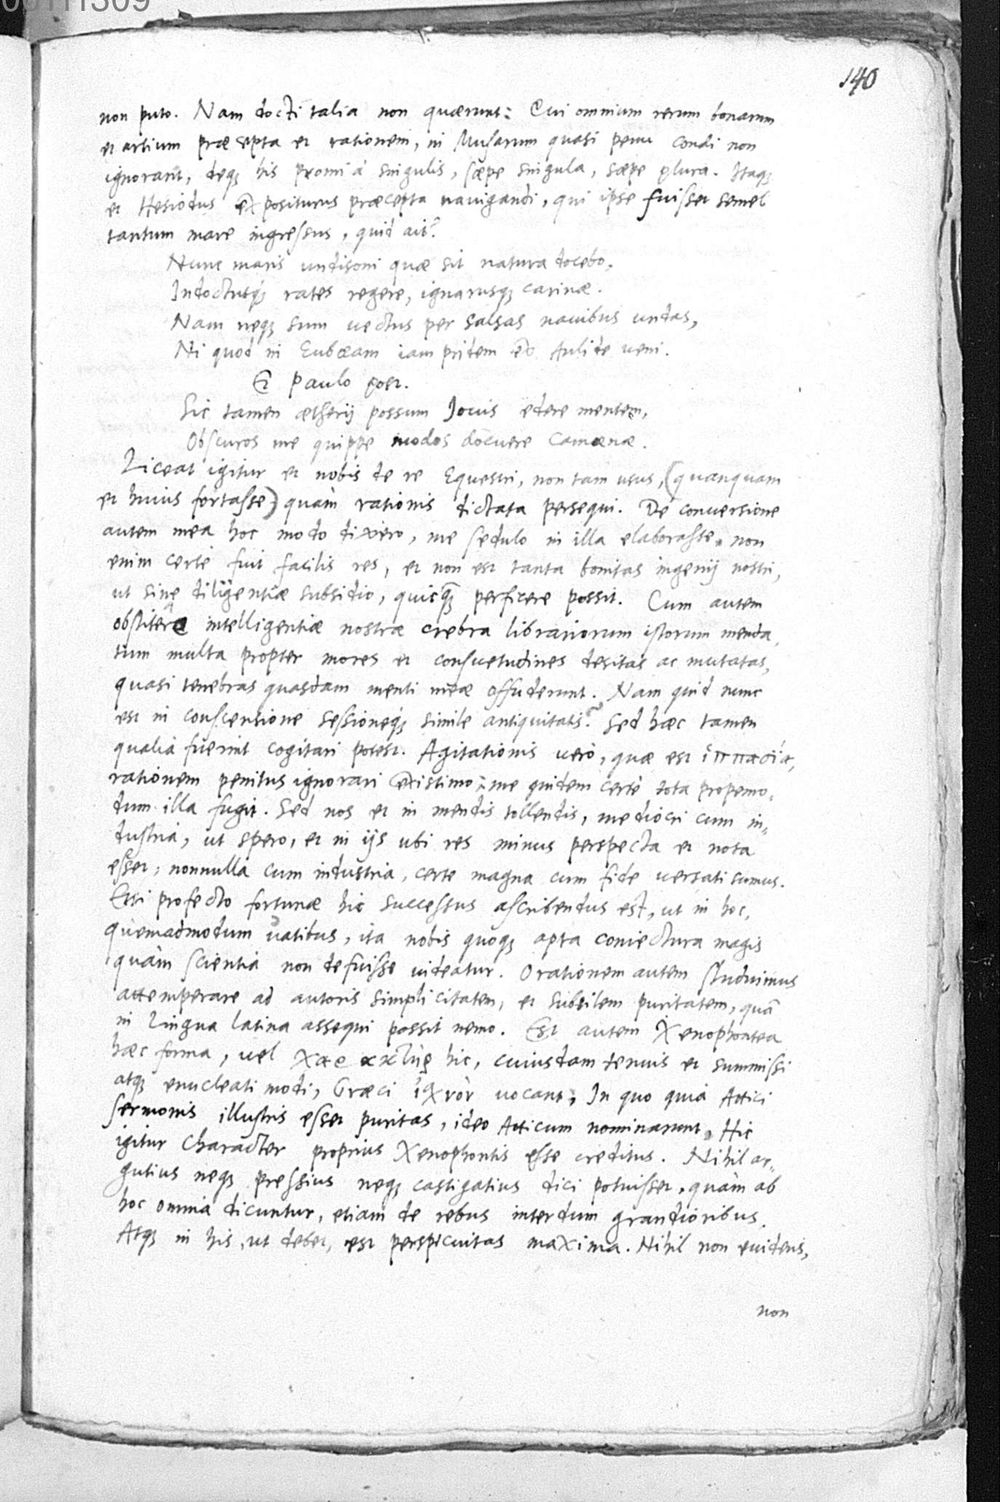 00111309
140
non puto. Nam docti talia non quærunt: Qui omnium rerum bonarum
et artium præcepta et rationem, in Musarum quasi penu condi non
ignorant, deq; his promi à singulis, sæpe singula, sæpe plura. Itaq;
et Hesiodus expositurus præcepta navigandi, qui ipse fuisset semel
tantum mare ingressus, quid ait?
Nunc maris undisoni quæ sit natura docebo,
Indoctusq́; rates regere, ignarusq; carinæ.
Nam neq; sum vectus per salsas navibus undas,
Ni quod in Eubœam iam pridem ex Aulide veni.
Et paulo post.
Sic tamen ætherij possum Jovis edere mentem,
Obscuros me quippe modos docuere Camœnæ.
Liceat igitur et nobis de re Equestri, non tam usus, (quanquam
et huius fortasse) quàm rationis dictata persequi. De conversione
autem mea hoc modo dixero, me sedulo in illa elaborasse, non
enim certè fuit facilis res, et non est tanta bonitas ingenij nostri,
ut sine diligentiæ subsidio, quicq̃ perficere possit. Cum autem
obstiterẽ intelligentiæ nostræ crebra librariorum istorum menda,
tum multa propter mores et consuetudines desitas ac mutatas,
quasi tenebras quasdam menti meæ offuderunt. Nam quid nunc
est in conscensione sessioneq́; simile antiquitatis? Sed hæc tamen
qualia fuerint cogitari potest. Agitationis verò, quæ est ἱππασία,
rationem penitus ignorari existimo; me quidem certè tota propemo,
dum illa fugit. Sed nos et in mendis tollendis, mediocri cum in,
dustria, ut spero, et in ijs ubi res minus perspecta et nota
esset, nonnulla cum industria, certe magna cum fide versati sumus.
Etsi profecto fortunæ hic successus ascribendus est, ut in hoc,
quemadmodum vatibus, ita nobis quoq; apta coniectura magis
quàm scientia non defuisse videatur. Orationem autem studuimus
attemperare ad autoris simplicitatem, et subtilem puritatem, quã
in lingua latina assequi possit nemo. Est autem Xenophontea
hæc forma, vel χαρακτὴρ hic, cuiusdam tenuis et summissi
atq; enucleati modi, Græci ἰσχνὸν vocant; In quo quia Attici
sermonis illustris esset puritas, ideo Atticum nominarunt. Hic
igitur character proprius Xenophontis esse creditus. Nihil ar,
gutius neq; pressius neq; castigatius dici potuisset, quàm ab
hoc omnia dicuntur, etiam de rebus interdum grandioribus.
Atq; in his, ut debet, est perspicuitas maxima. Nihil non evidens,
non